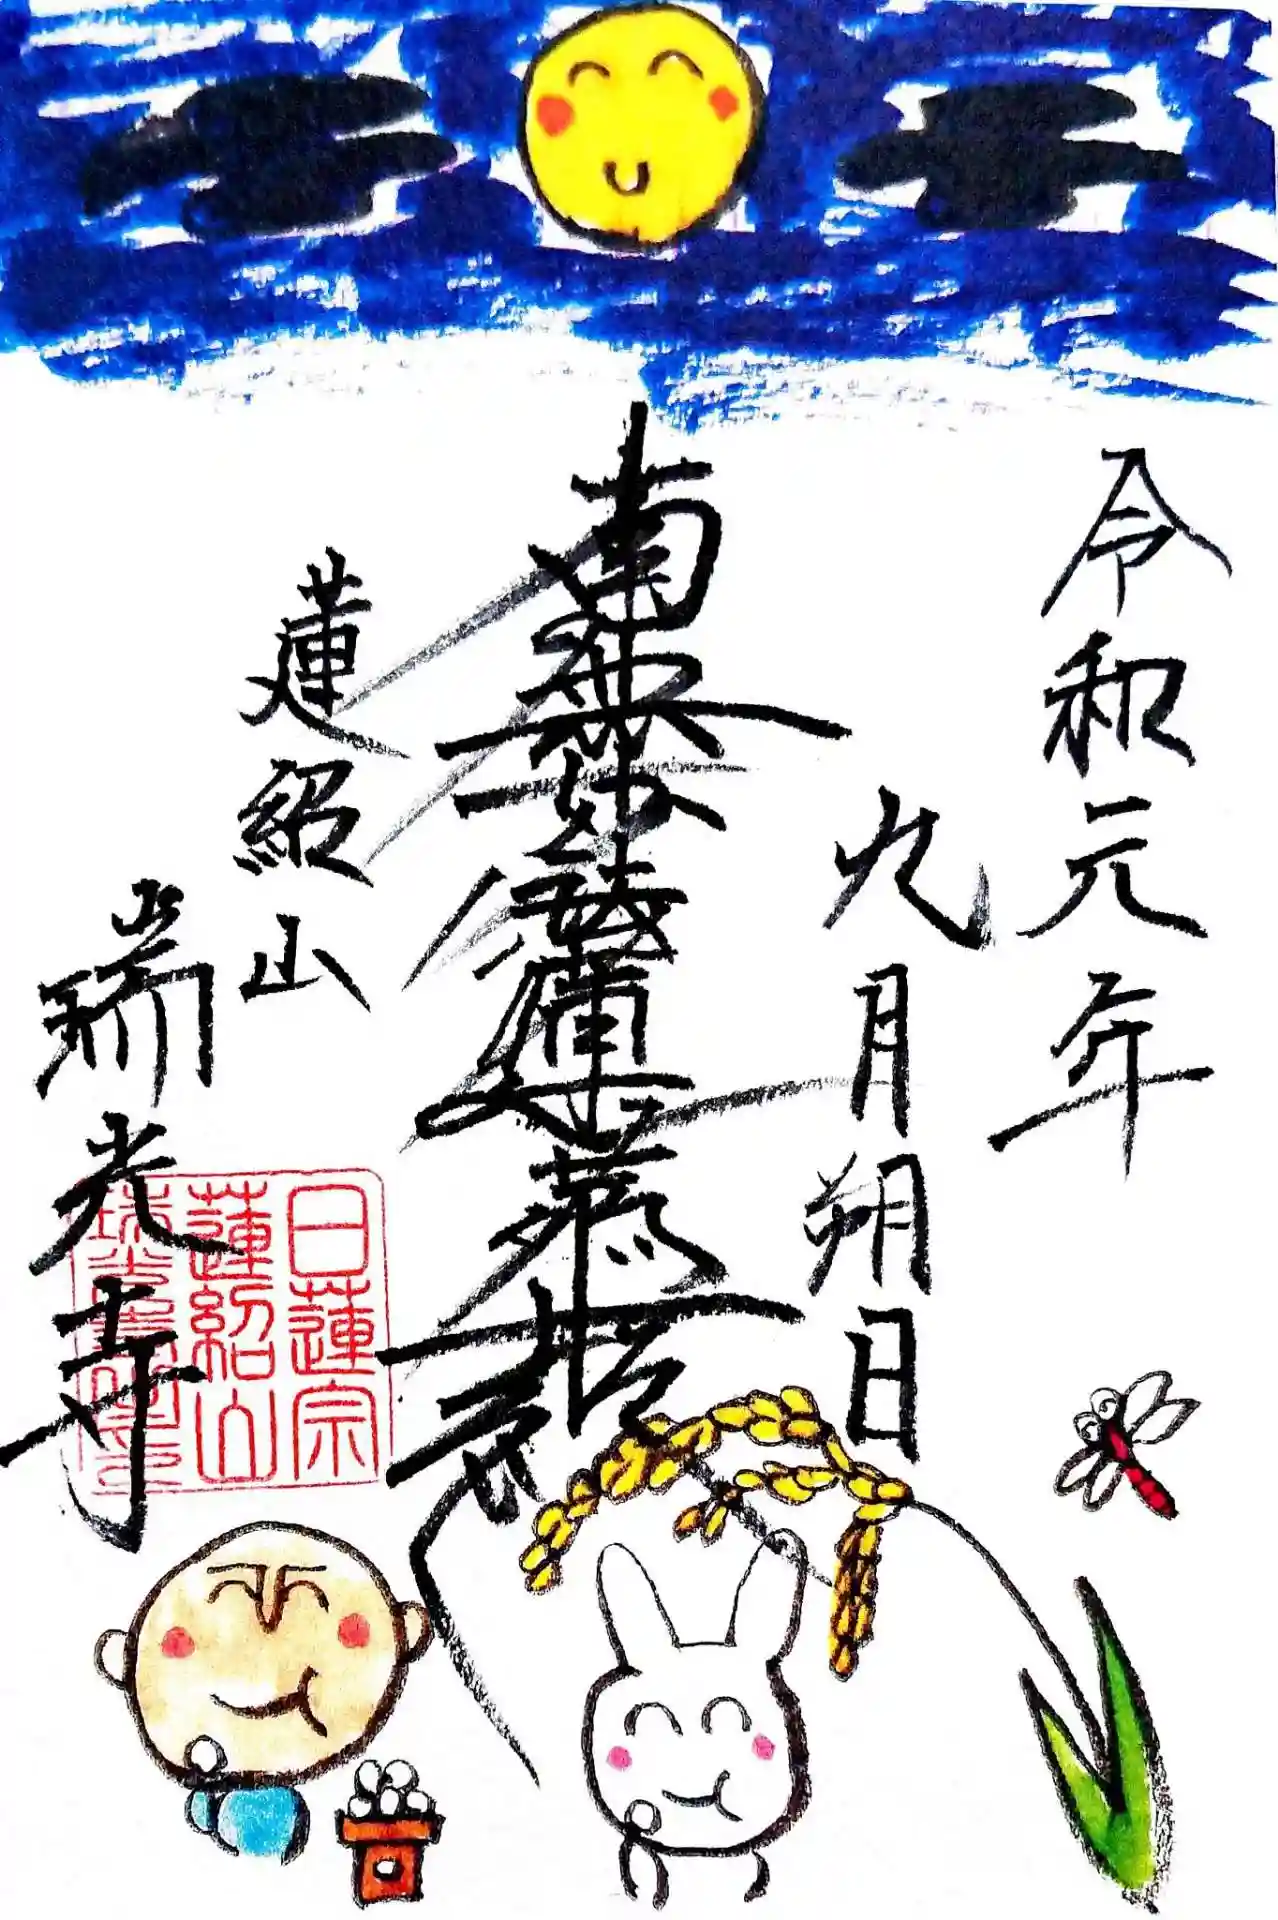 令和元年
九月朔日
南無妙法蓮華経
蓮紹山
瑞光寺
日蓮宗
蓮紹山